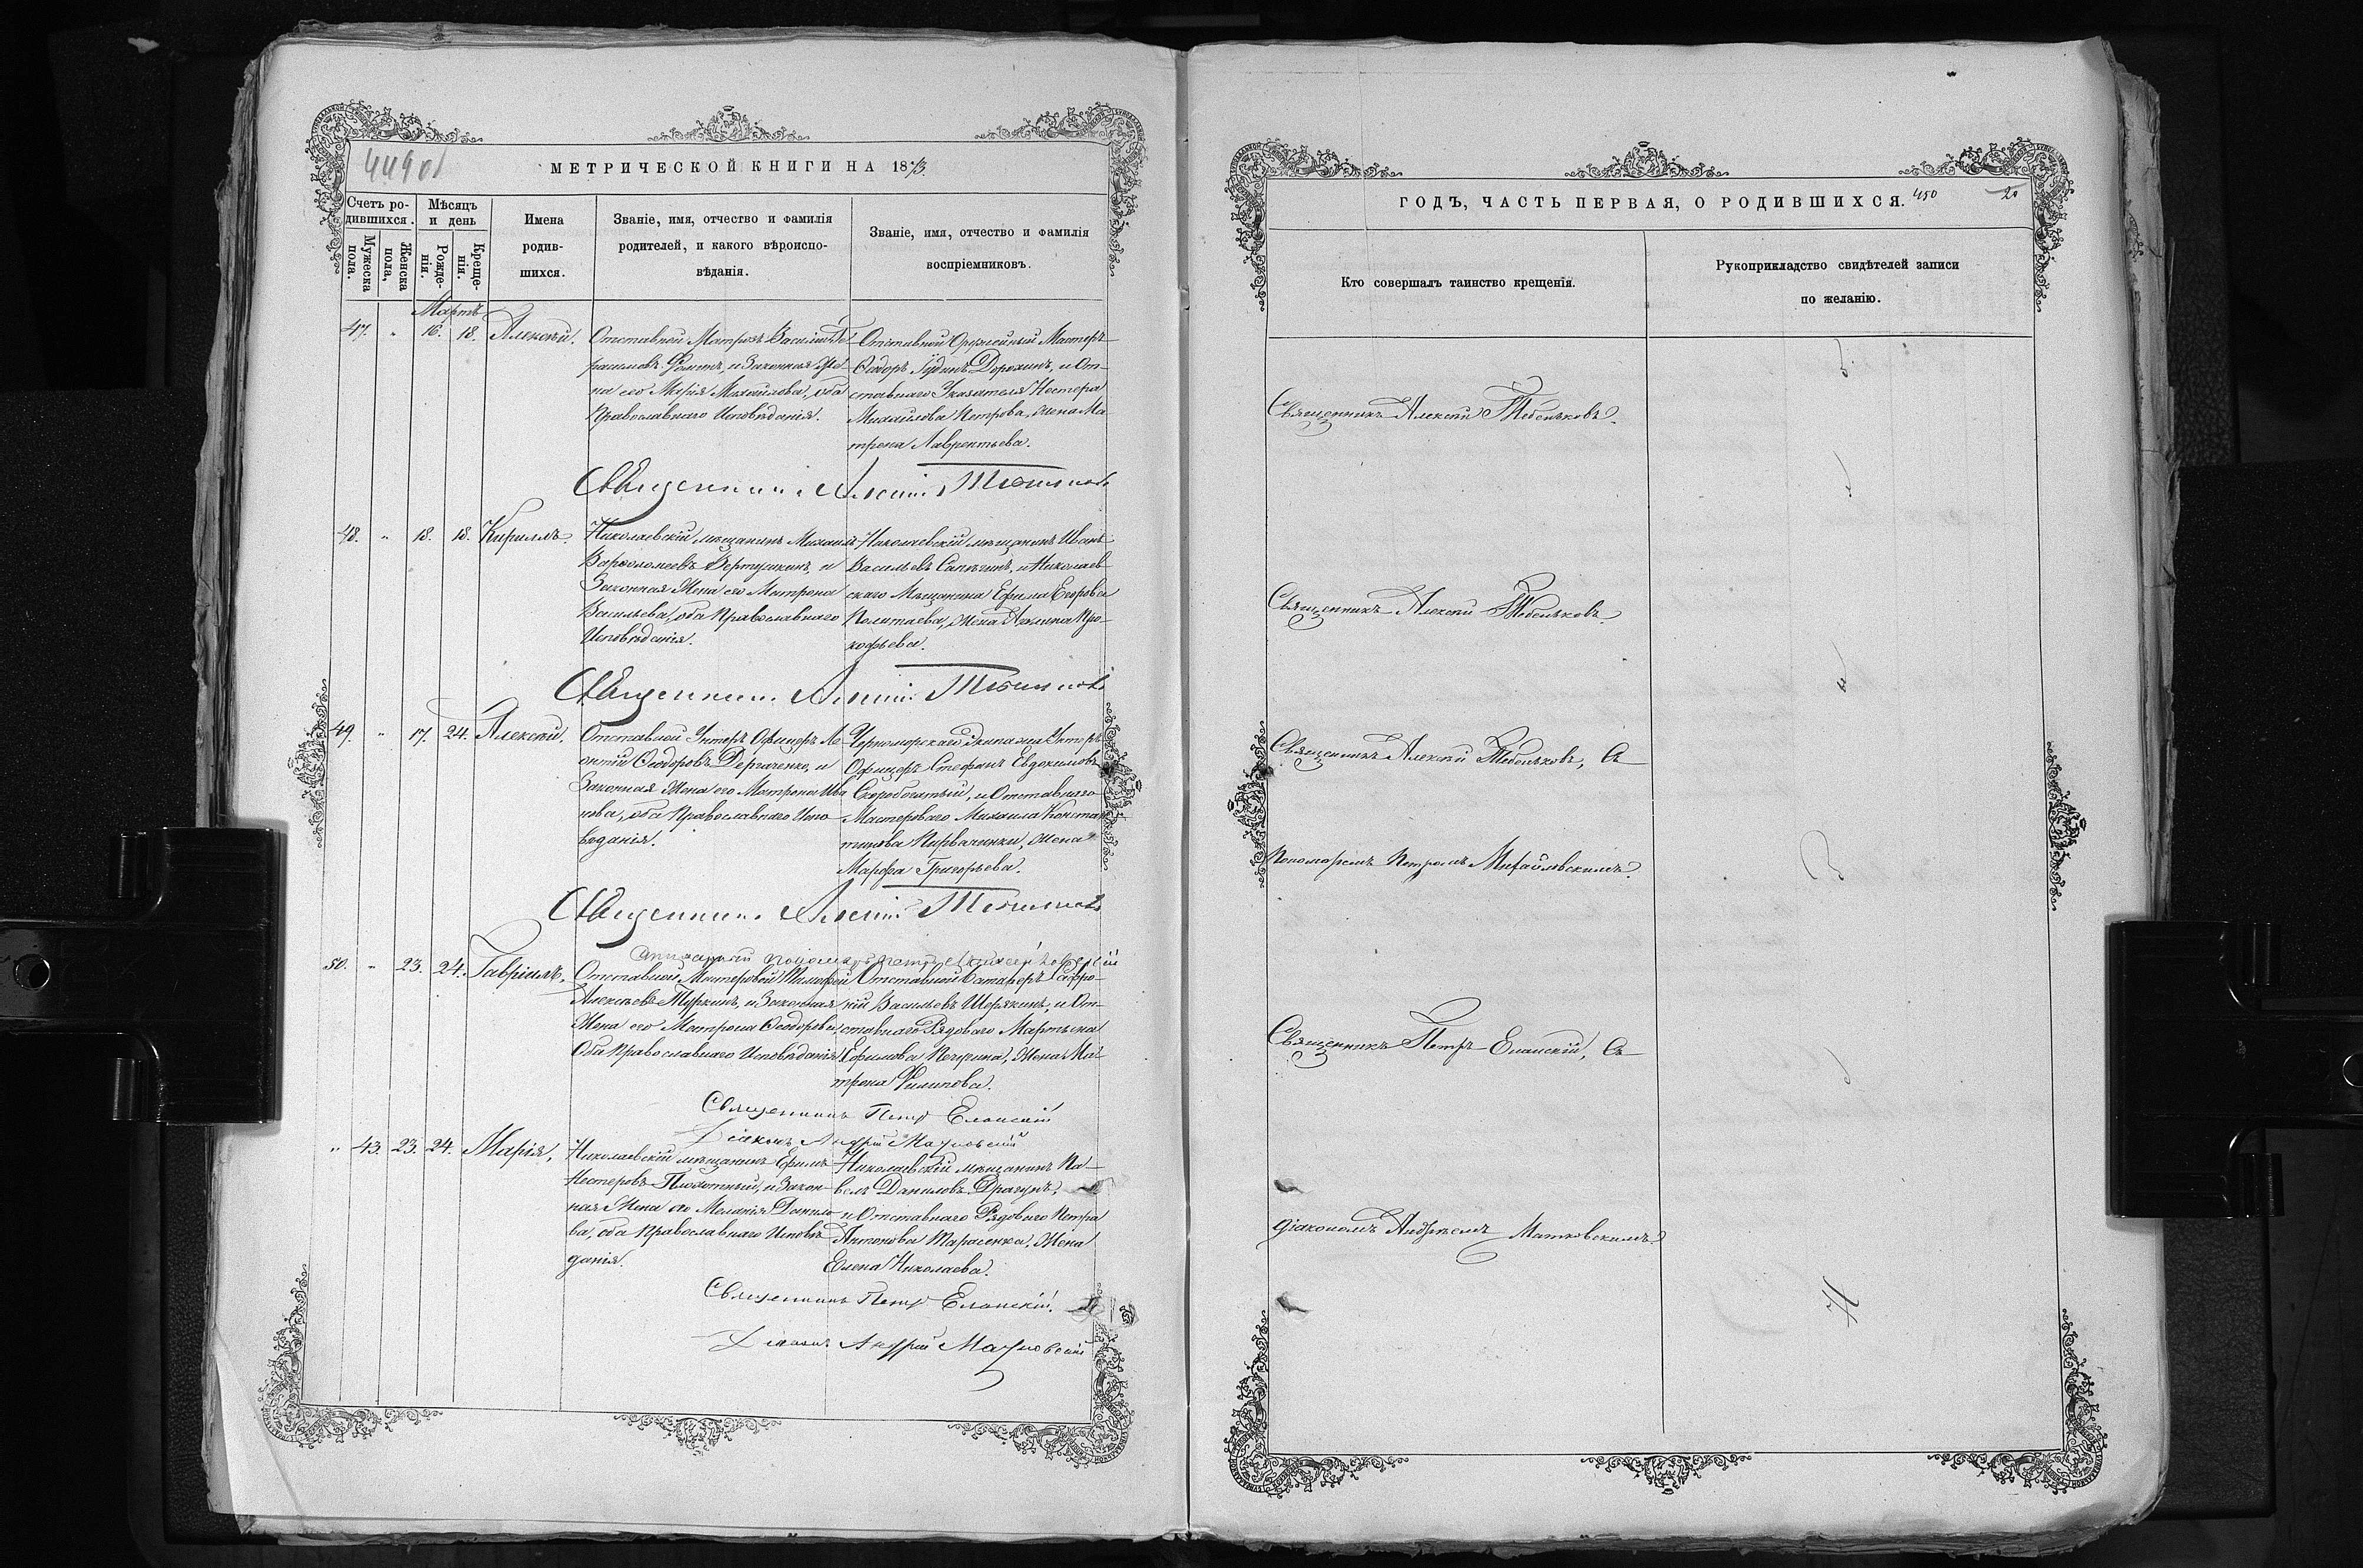 449 об
МЕТРИЧЕСКОЙ КНИГИ НА 1873
Счетъ ро-
дившихся.
Мужеска пола.
Женска пола,
Мѣсяцъ
и день
Рожде-
нія.
Креще-
нія.
Имена
родив-
шихся.
Званіе, имя, отчество и фамилія
родителей, и какого вѣроиспо-
вѣданія.
Званіе, имя, отчество и фамилія
воспріемниковъ.
Мартъ
47. " 16. 18. Алексѣй.
Отставной Матрозъ Василій Ге-
расимовъ и Законная Же-
на его Марія Михайлова, оба
Православнаго Исповѣданія.
Отставной Оружейный Мастеръ
Ѳедоръ Дорохинъ, и От-
ставнаго Указателя Нестера
Михайлова Петрова, жена Ма-
трона Лаврентьева.
Священникъ Алексій Тебеньковъ
48. " 18. 18. Кириллъ.
Николаевскій мѣщанинъ Михаилъ
Варѳоломеевъ Вертушкинъ, и
Законная Жена его Матрона
Васильева, оба Православнаго
Исповѣданія.
Николаевскій мѣщанинъ Иванъ
Васильевъ и Николаев-
скаго Мѣщанина Ефима Егорова
Политаева, жена Акилина Про-
кофьева.
Священникъ Алексій Тебеньковъ
49. " 17. 24. Алексѣй.
Отставной Унтеръ Офицеръ Ле-
онтій Ѳеодоровъ Дергаченко, и
Законная Жена его Матрона Ива-
нова, оба Православнаго Испо-
вѣданія.
Черноморскаго Экипажа Унтеръ
Офицеръ Стефанъ Евдокимовъ
Скоробогатый, и Отставнаго
Мастероваго Михаила Констан-
тинова жена
Марфа Григорьева.
Священникъ Алексій Тебеньковъ
пономарь Петръ Михайловскій
50. " 23. 24. Гавріилъ.
Отставной Мастеровой Тимофей
Алексѣевъ Туркинъ, и Законная
Жена его Матрона Ѳеодорова
Оба Православнаго Исповѣданія
Отставной Софро-
ній Васильевъ и От-
ставнаго Рядоваго Мартына
Ефимова Печерина, Жена Ма-
трона Филипова.
Священникъ Петръ Еланскій
Діаконъ Андрей Матковскій
" 43. 23. 24. Марія,
Николаевскій мѣщанинъ Ефимъ
Нестеровъ Плохотный, и Закон-
ная Жена его Меланія Данило-
ва, оба Православнаго Исповѣ-
данія.
Николаевскій мѣщанинъ Па-
велъ Даниловъ Драгунъ,
и Отставнаго Рядоваго Петра
Антонова Тарасенка, Жена
Елена Николаева.
Священникъ Петръ Еланскій.
Діаконъ Андрей Матковскій
ГОДЪ, ЧАСТЬ ПЕРВАЯ, О РОДИВШИХСЯ. 450 20
Кто совершалъ таинство крещенія.
Рукоприкладство свидѣтелей записи
по желанію.
Священникъ Алексѣй Тебеньковъ.
Священникъ Алексѣй Тебеньковъ.
Священникъ Алексѣй Тебеньковъ, Съ
Пономаремъ Петромъ Михайловскимъ.
Священникъ Петръ Еланскій, Съ
Діакономъ Андреемъ Матковскимъ.